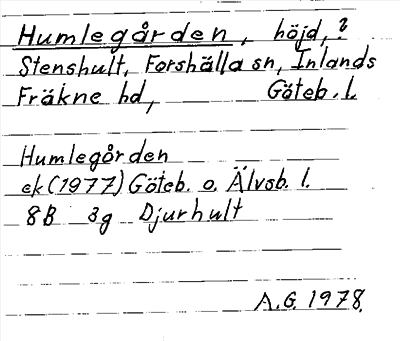 Humlegården, höjd, ?
Stenshult, Forshälla sn, Inlands
Fräkne hd, Göteb. l.
Humlegården
ek (1977) Göteb. o. Älvsb. l.
8B 3g Djurhult
A.G. 1978.